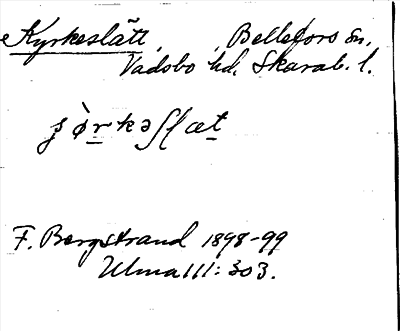 Kyrkeslätt, Bellefors sn,
Vadsbo hd, Skarab. l.
F. Bergstrand 1898-99
Ulma 111: 303.